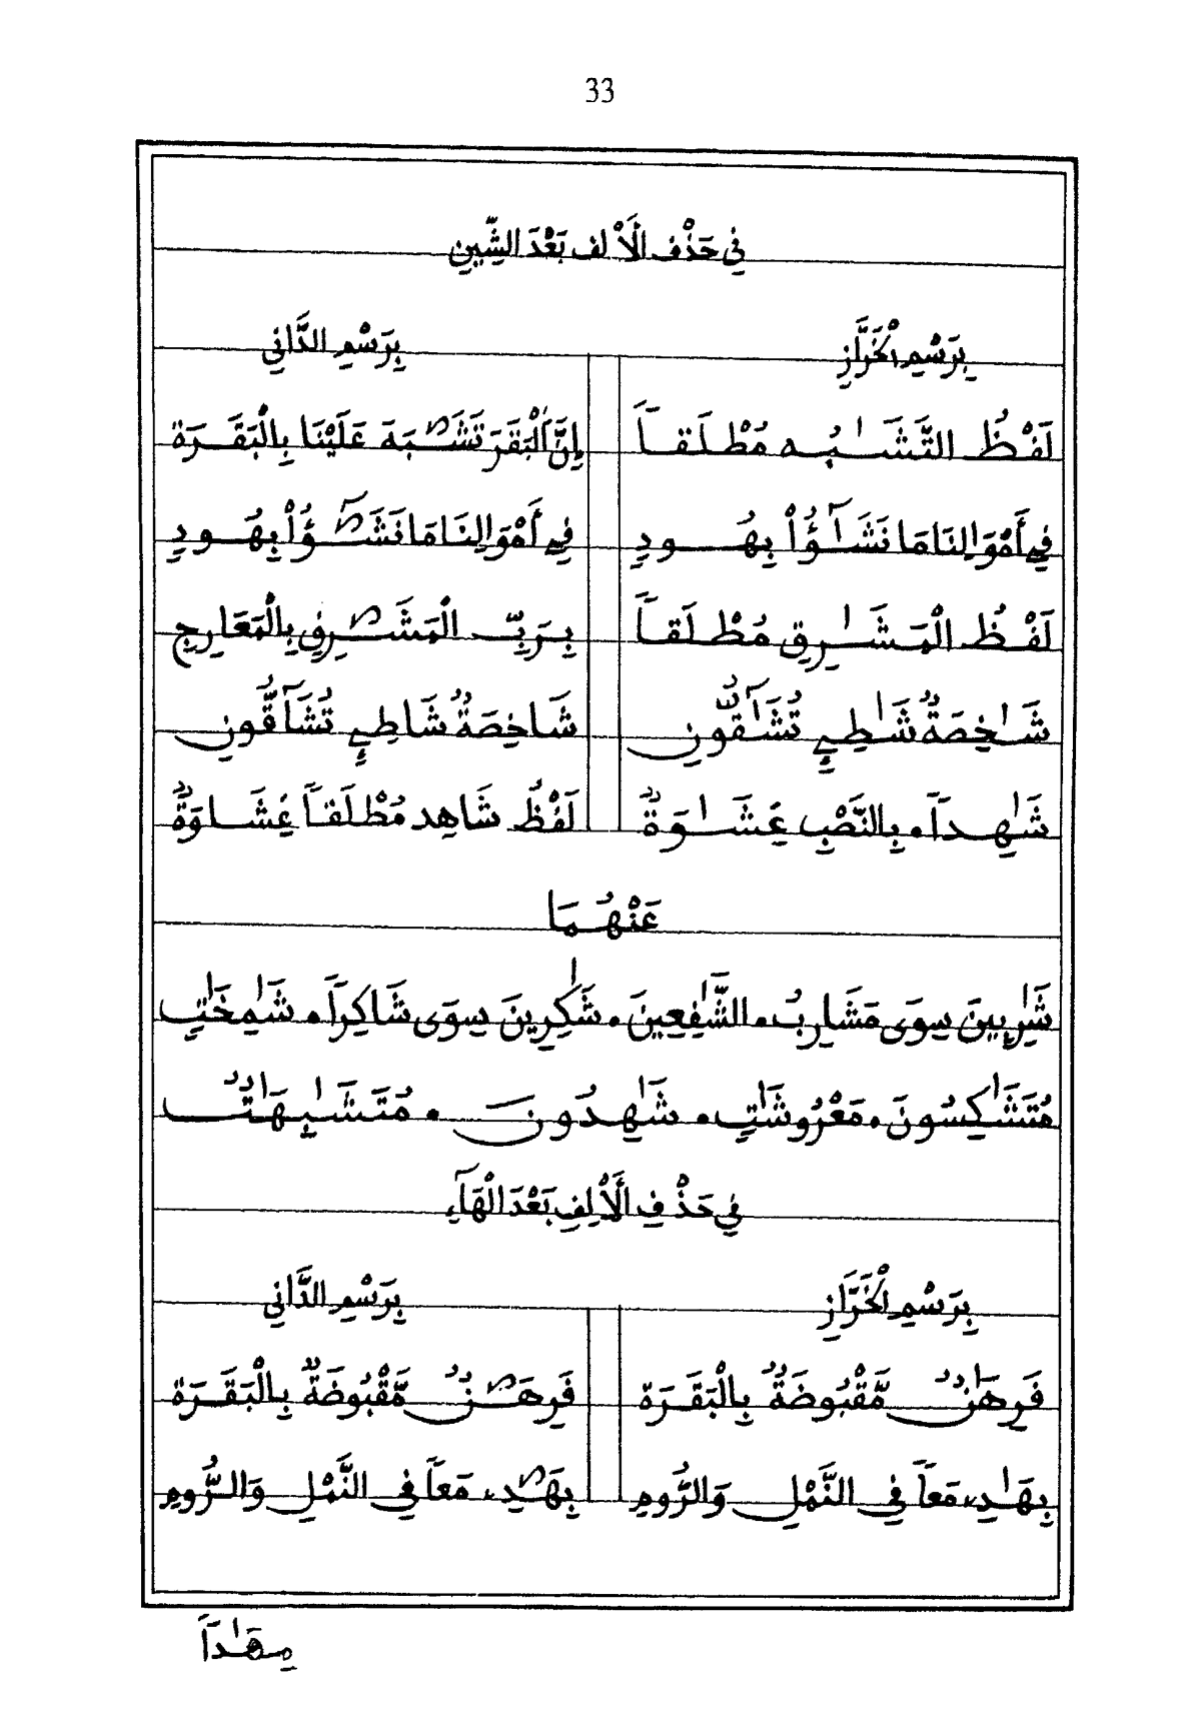 33
فِي حَذْفِ الْأَلِفِ بَعْدَ الشِّينِ
بِرَسْمِ الْخَرَّازِ بِرَسْمِ الدَّانِي
لَفْظُ التَّشَٰبُهِ مُطْلَقاً إِنَّ اَلْبَقَرَ تَشَٰبَهَ عَلَيْنَا بِالْبَقَرَةِ
فِي أَمْوَالِنَا مَا نَشَٰٓؤُاْ بِهُودٍ فِي أَمْوَالِنَا مَا نَشَٰٓؤُاْ بِهُودٍ
لَفْظُ الْمَشَٰرِقِ مُطْلَقاً بِرَبِّ الْمَشَٰرِقِ بِالْمَعَارِجِ
شَٰخِصَةٌ شَٰطِيِٕ تُشَٰٓقُّونِ شَاخِصَةٌ شَاطِيِٕ تُشَآقُّونِ
شَٰهِداً بِالنَّصْبِ غِشَٰوَةٌ لَفْظُ شَاهِد مُطْلَقاً غِشَاوَةٌ
عَنْهُمَا
شَٰرِبِينَ سِوَى مَشَارِبُ الشَّٰفِعِينَ شَٰكِرِينَ سِوَى شَاكِراً شَٰمِخَٰتٍ
مُتَشَٰكِسُونَ مَعْرُوشَٰتٍ شَٰهِدُونَ مُتَشَٰبِهَٰتٌ
فِي حَذْفِ الْأَلِفِ بَعْدَ الْهَآءِ
بِرَسْمِ الْخَرَّازِ بِرَسْمِ الدَّانِي
فَرِهَٰنٌ مَّقْبُوضَةٌ بِالْبَقَرَةِ فَرِهَٰنٌ مَّقْبُوضَةٌ بِالْبَقَرَةِ
بِهَٰدِ، مَعاً فِي النَّمْلِ وَالرُّومِ بِهَٰدِ، مَعاً فِي النَّمْلِ وَالرُّومِ
مِهَٰداً